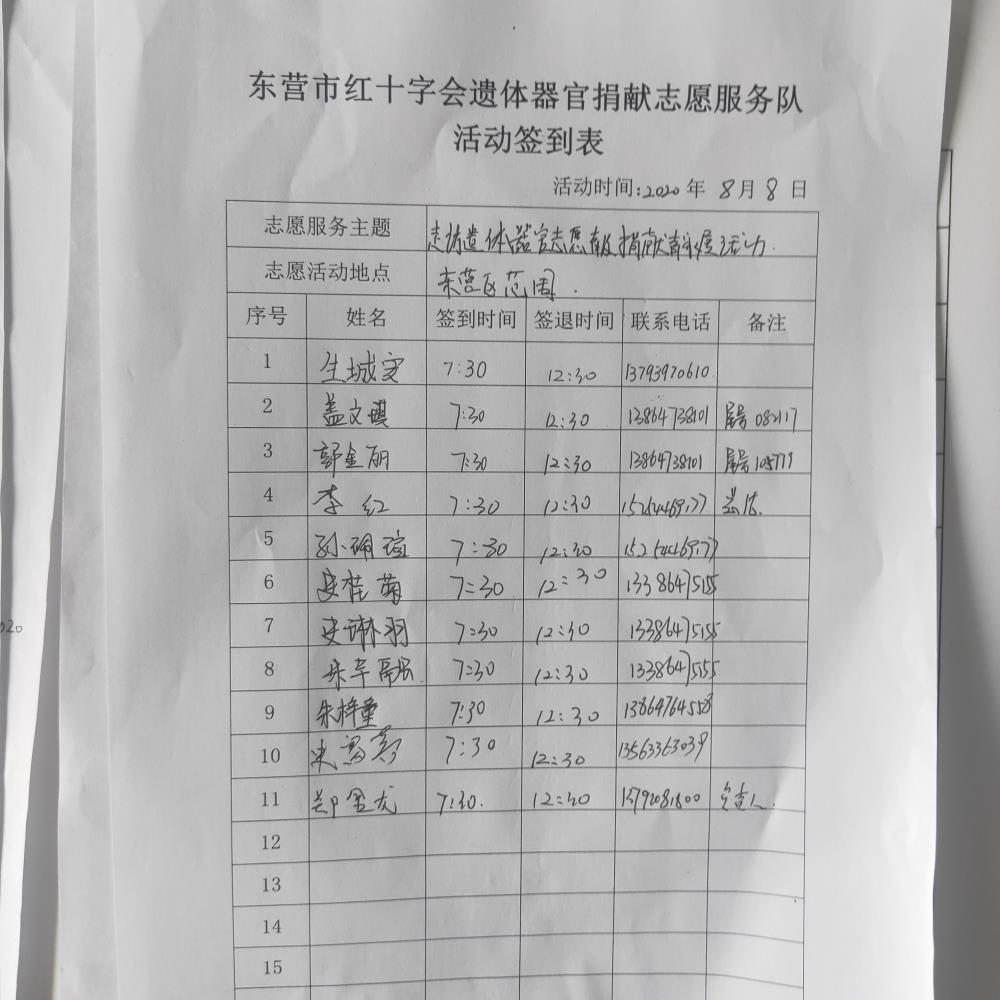 东营市红十字会遗体器官捐献志愿服务队
活动签到表
活动时间:2020年 8月8日
志愿服务主题 遗体器官志愿 捐献 活动.
志愿活动地点 东营区范围.
序号 姓名 签到时间 签退时间 联系电话 备注
1 生城 7:30 12:30 13793970610
2 盖文琪 7:30 12:30 13864738101
3 郭金丽 7:30 12:30 13864738101
4 李红 7:30 12:30
5 孙珮瑄 7:30 12:30
6 桂菊 7:30 12:30 13386475155
7 琳羽 7:30 12:30 13386475155
8 7:30 12:30 13386475155
9 朱梓童 7:30 12:30 13864764558
10 7:30 12:30 13563363039
11 郑金龙 7:30. 12:30 负责人.
12
13
14
15
020